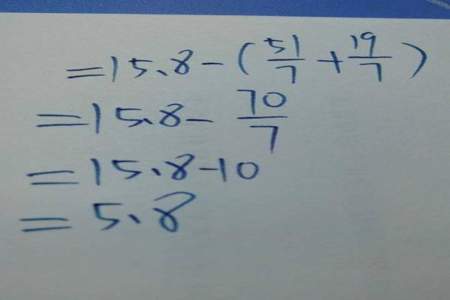 =15.8-(51/7+19/7)
=15.8-70/7
=15.8-10
=5.8